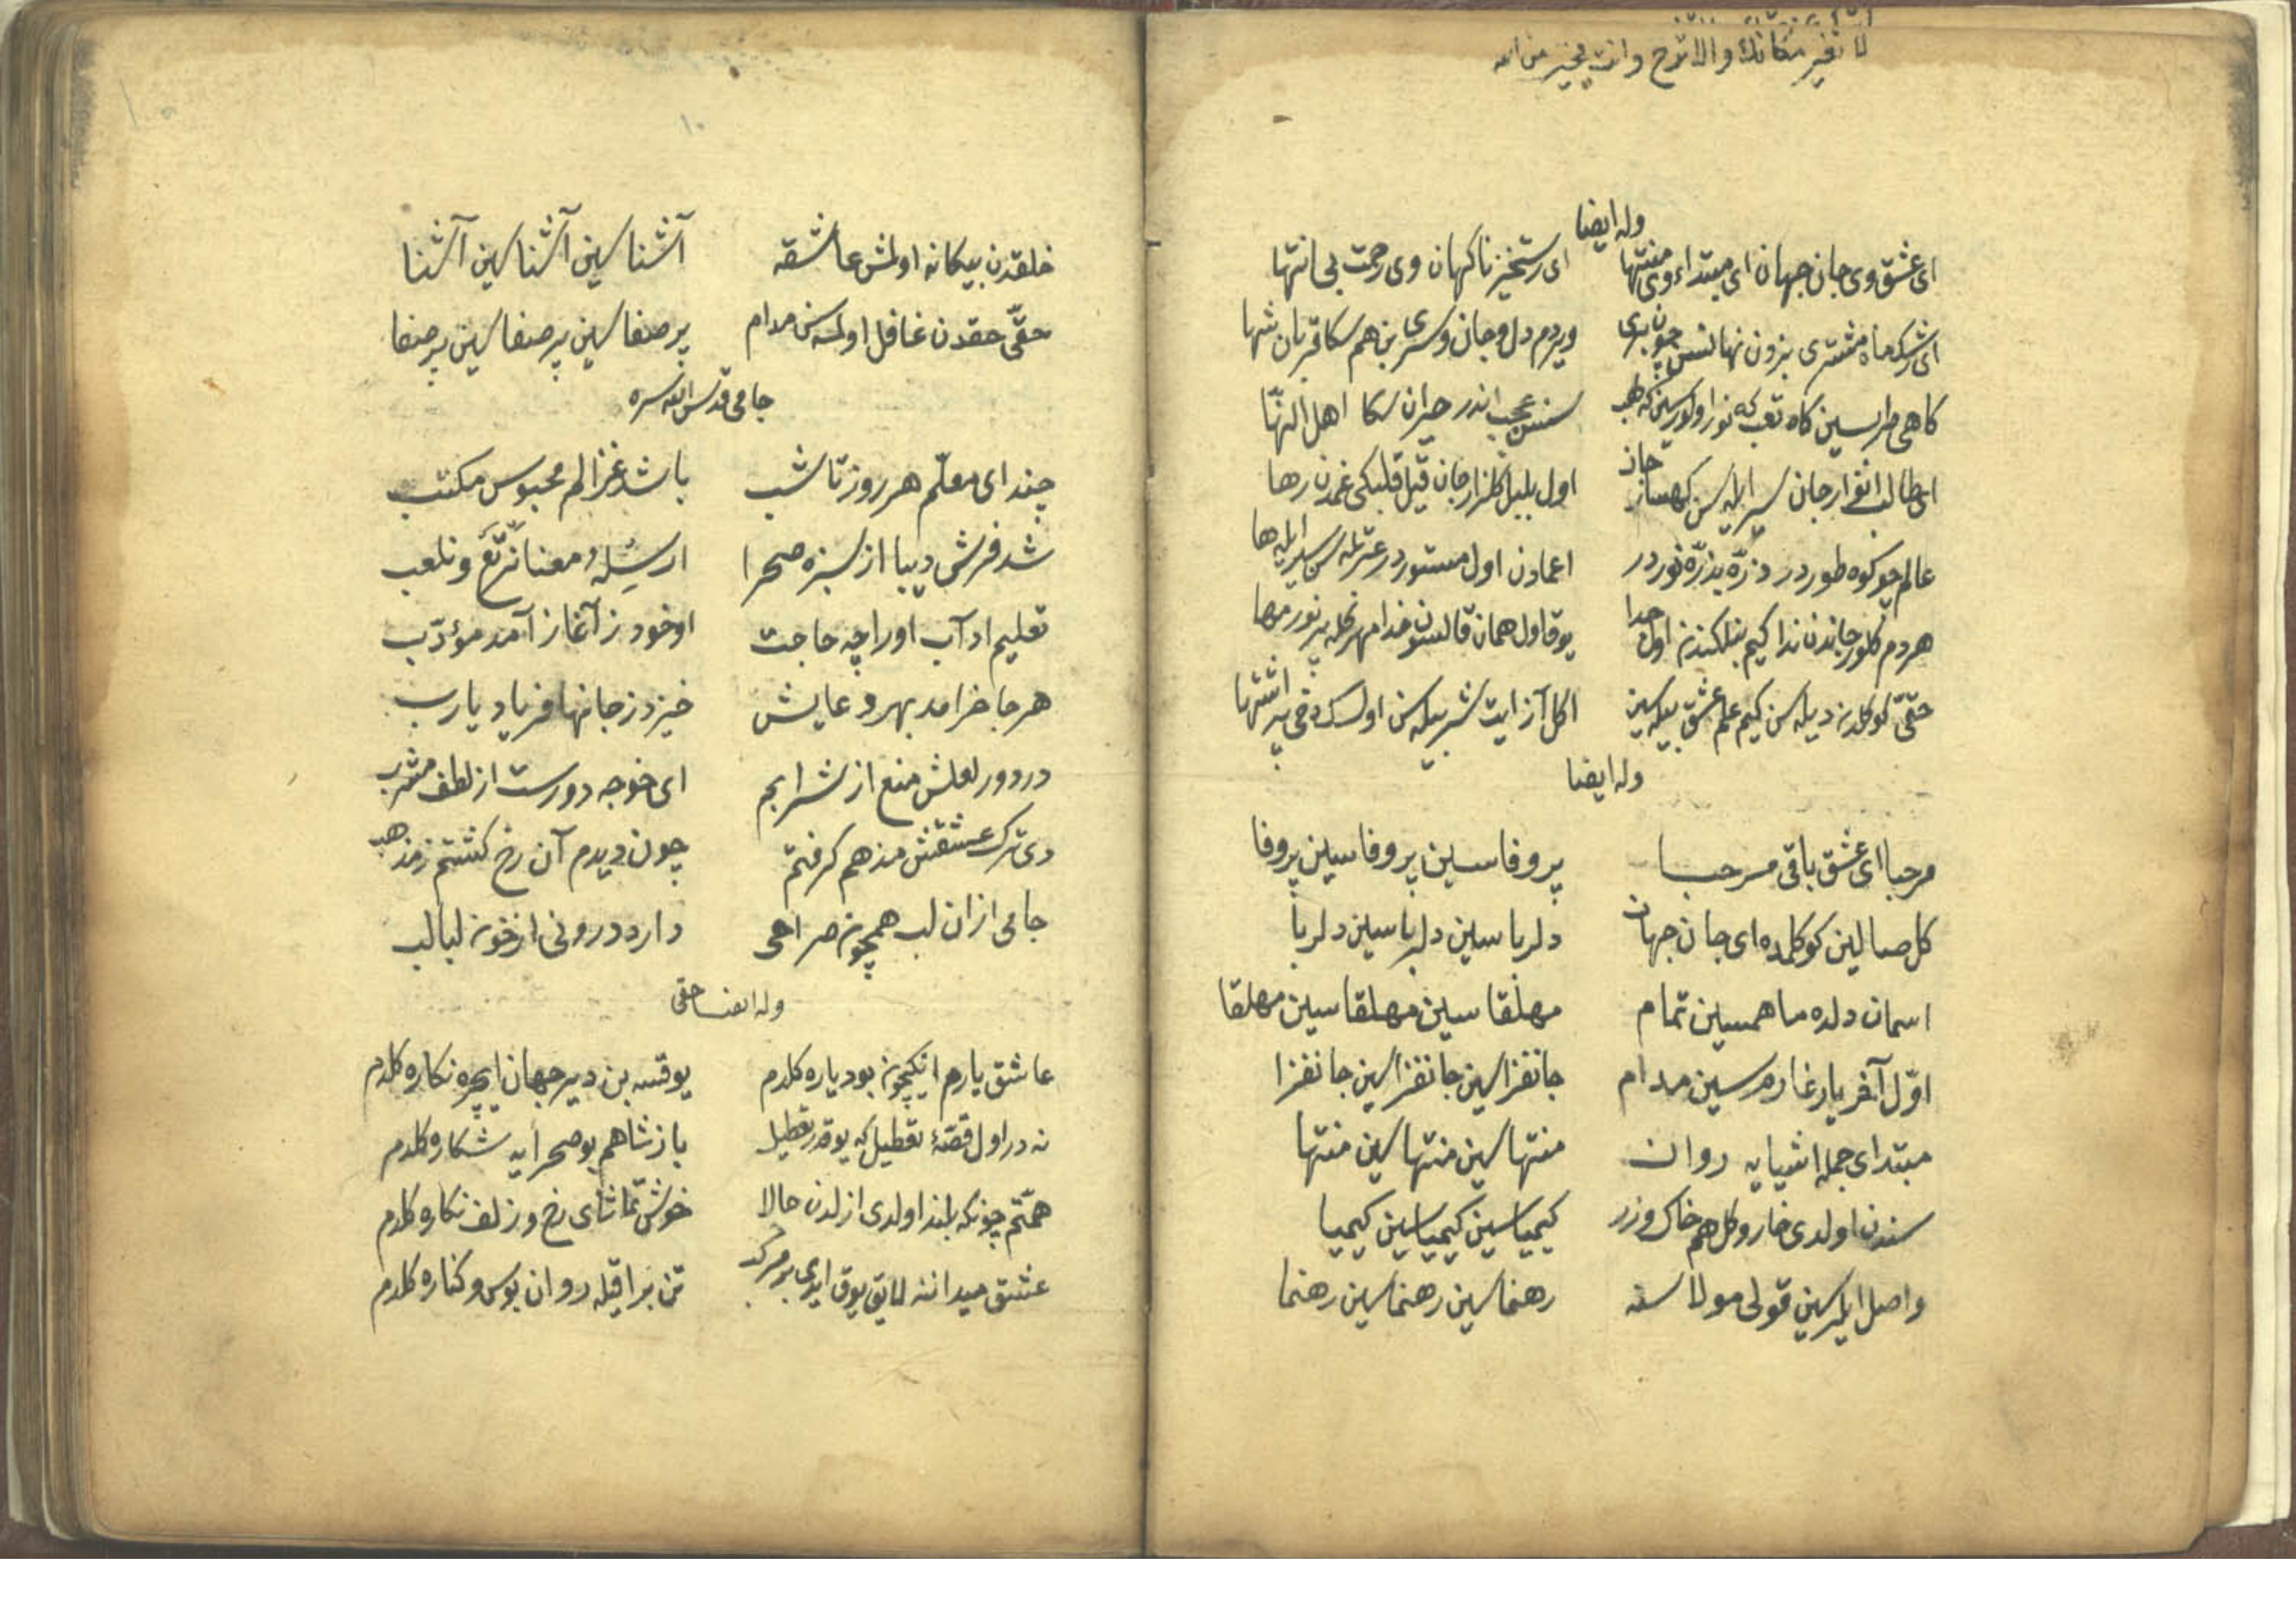 لا تغیر مکانك والا تروح وانت بخیر من الله
وله ایضا
ای عشق وی جان جهان ای مبتداء وی منتها ای رستخیز ناکهان وی رحمت بی انتها
ای رشك ماه مشتری بزدن نهانسن چون پری ویردم دل و جان و سری بن هم سکا قربان شها
کاهی طرارسین کاه تعب که نور اولورسین که لهب سنسن عجب اندر حیران سکا اهل النها
ای طالب انوار جان سیر ایله سن کهسار جان اول بلبل کلزار جان قیل قلبکی غمدن رها
عالم چو کوه طور در ذرّه بذرّه نور در اعمادن اول مستور در عزتله سن سیر ایله ها
هردم کلور جاندن ندا کیم بنلکندن اول جدا یوق اول همان قالسون خدا مهر نحله پر نور مها
حقّی کوکلدن دیله سن کیم علم عشق بیله سین اکل آز ایت شربیله سن اولسك دخی پر اشتها
وله ایضا
مرحبا ای عشق باقی مرحبا پر وفاسین پر وفاسین پر وفا
کل صالین کوکلمده ای جان جهان دلرباسین دلرباسین دلربا
اسمان دلده ماهمسین تمام مهلقاسین مهلقاسین مهلقا
اوّل آخر یار غارمسین مدام جانفزاسین جانفزاسین جانفزا
مبتدای جمله اشیایه روان منتهاسین منتهاسین منتها
سندن اولدی خار و کل هم خاك و زر کیمیاسین کیمیاسین کیمیا
واصل ایلرسین قولی مولاسنه رهنماسین رهنماسین رهنما
۱۰
خلقدن بیکانه اولمش عاشقه آشناسین آشناسین آشنا
حقّی حقدن غافل اولمه سن مدام پر صفاسین پر صفاسین پر صفا
جامی قدس الله سره
چند ای معلّم هر روز تا شب باشد غزالم محبوس مکتب
شد فرش دیبا از سبزه صحرا ارسِلهُ معنا نرتَع ونلعب
تعلیم ادآب اورا چه حاجت او خود ز آغاز آمد مؤدّب
هرجا خرامد بهر دعایش خیزد ز جانها فریاد یارب
در دور لعلش منع از شرابم ای خوجه دورست از لطف مشرب
دی ترك عشقش مذهم کرفتم چون دیدم آن رخ کشتم ز مذهب
جامی از ان لب همچون صراحی دارد درونی از خون لبالب
وله ایضا حقی
عاشق یارم انکیچون بو دیاره کلدم یوقسه بن دیر جهان ایچره نکاره کلدم
نه در اول قصّهٔ تعطیل که یوقدر تعطیل باز شاهم بو صحرایه شکاره کلدم
همّتم چونکه بلند اولدی ازلدن حالا خوش تماشای رخ و زلف نکاره کلدم
عشق میداننه لایق یوق ایدی بر مرکب تن براقیله روان بوس و کناره کلدم